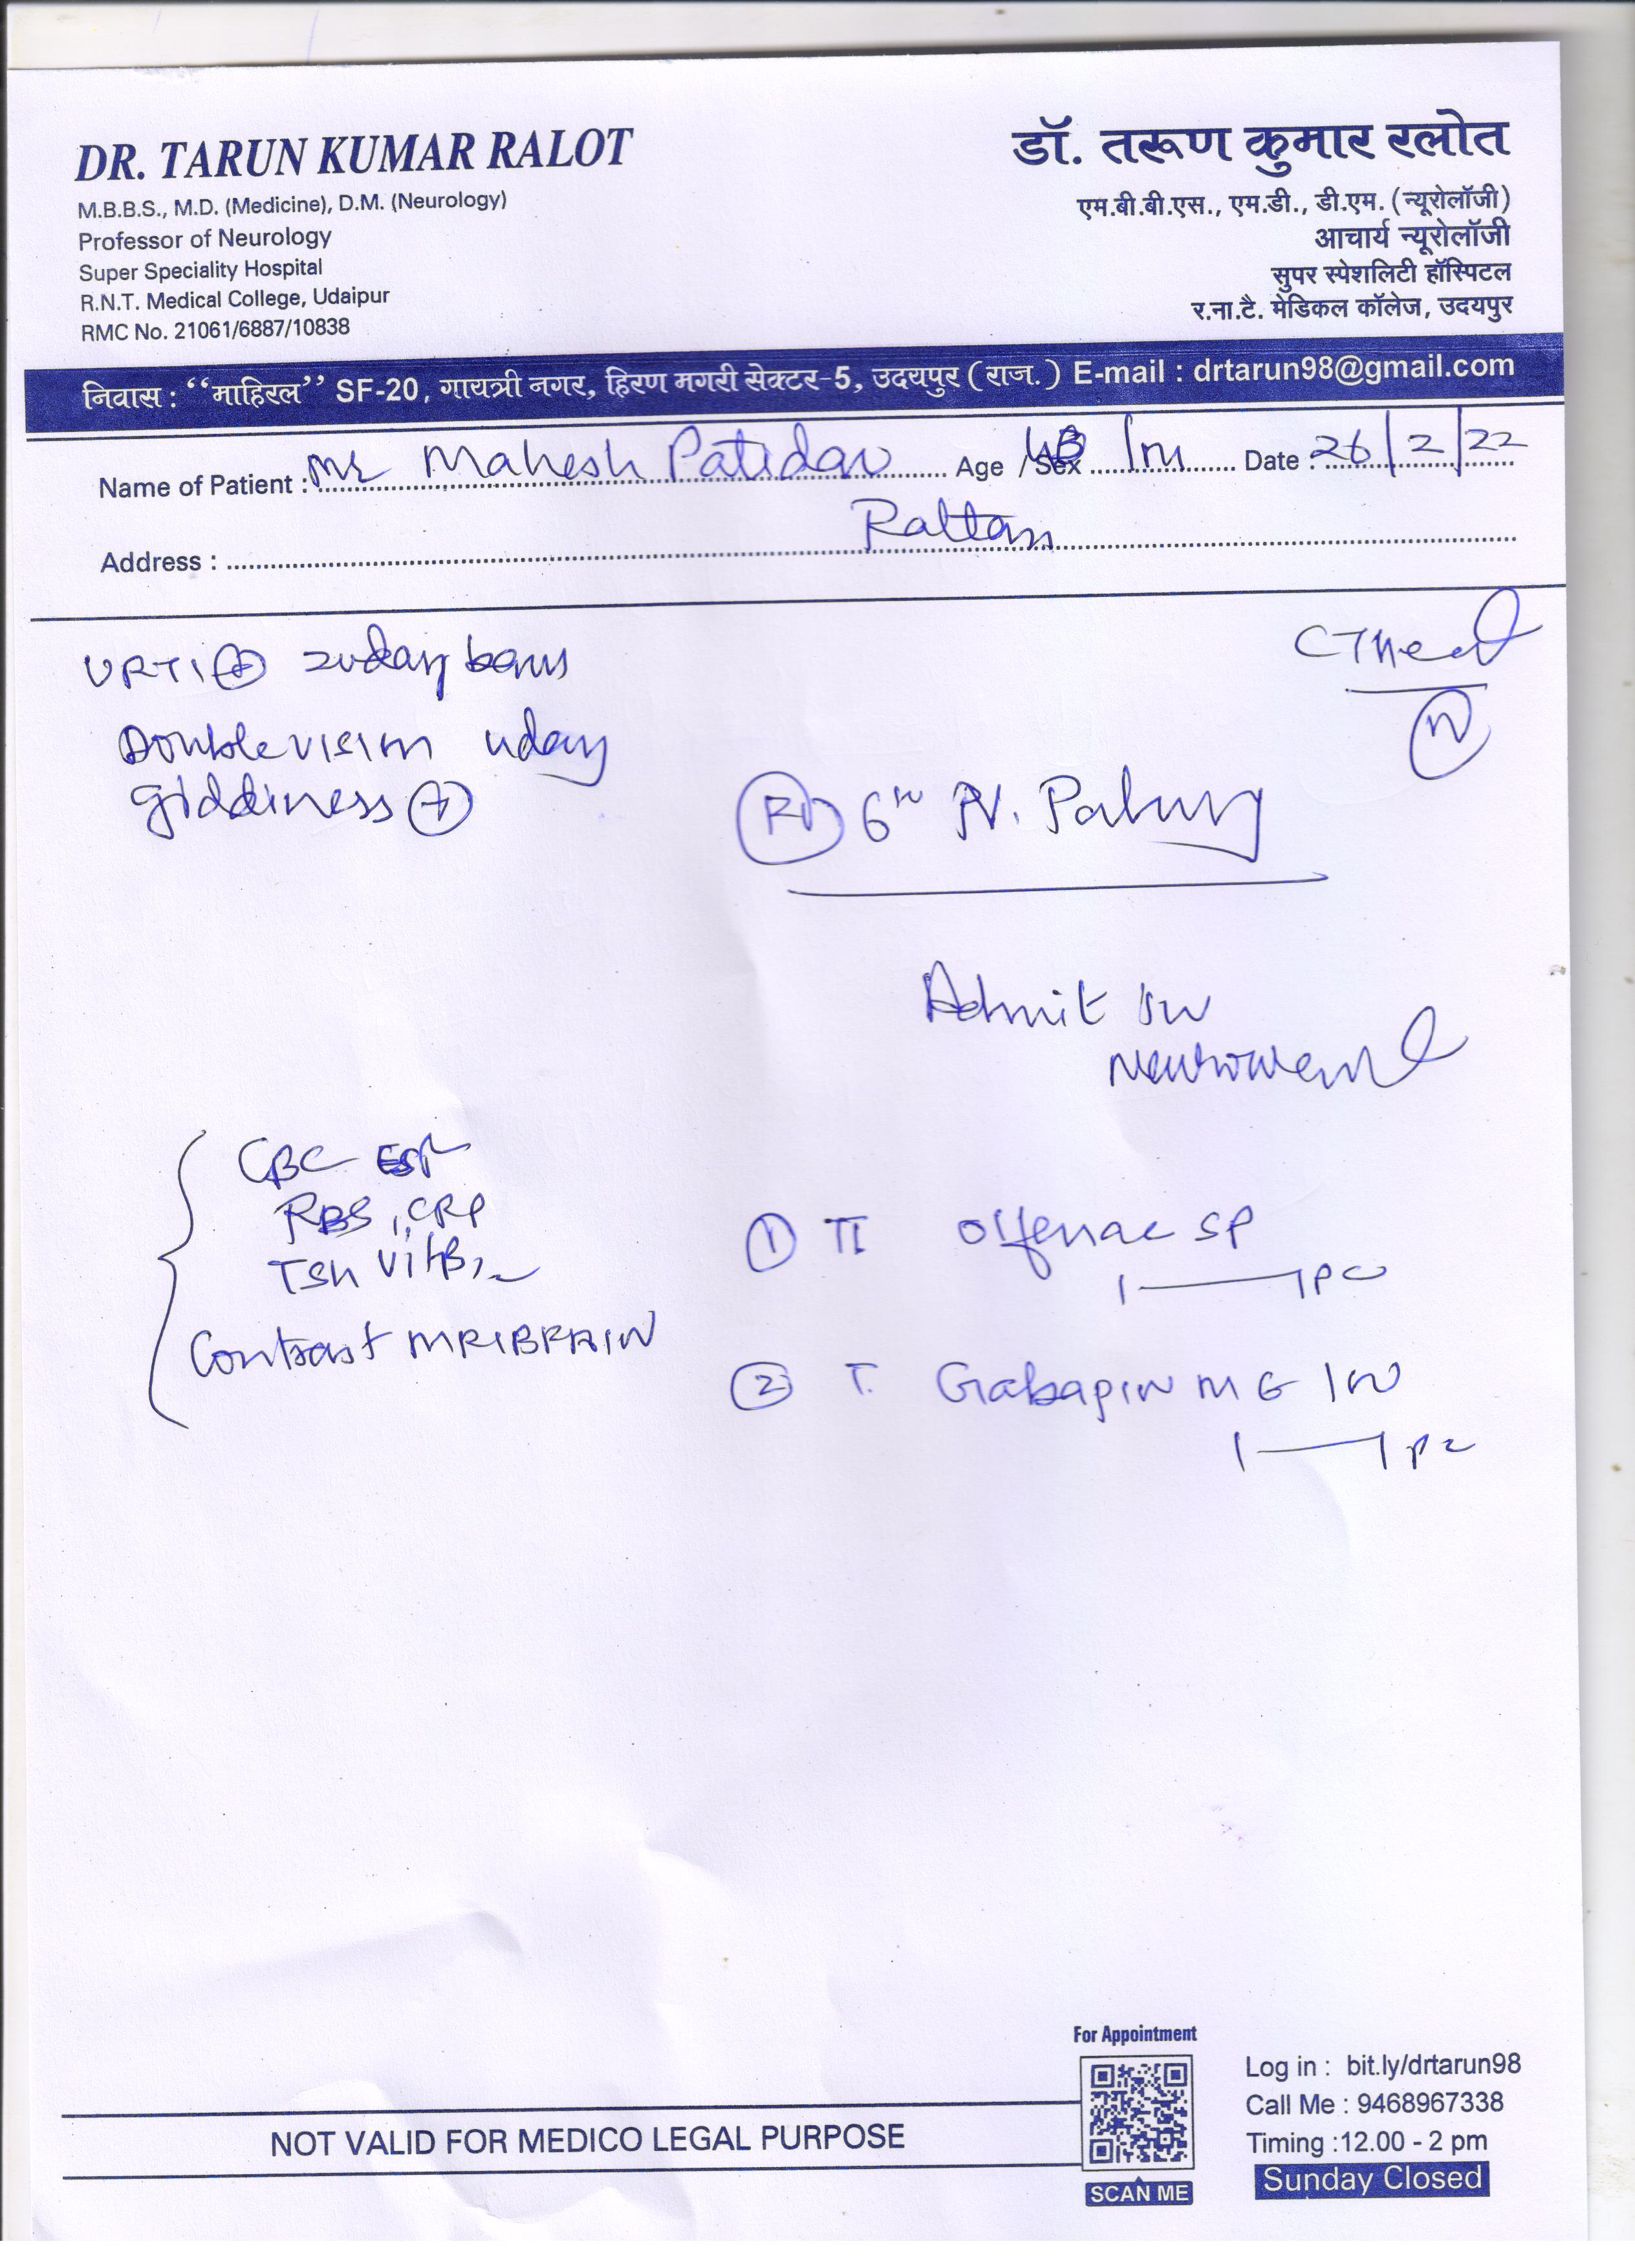 DR. TARUN KUMAR RALOT
M.B.B.S., M.D. (Medicine), D.M. (Neurology)
Professor of Neurology
Super Speciality Hospital
R.N.T. Medical College, Udaipur
RMC No. 21061/6887/10838
डॉ. तरूण कुमार रलोत
एम.बी.बी.एस., एम.डी., डी.एम. (न्यूरोलॉजी)
आचार्य न्यूरोलॉजी
सुपर स्पेशलिटी हॉस्पिटल
र.ना.टै. मेडिकल कॉलेज, उदयपुर
निवास : “माहिरल” SF-20, गायत्री नगर, हिरण मगरी सेक्टर-5, उदयपुर (राज.) E-mail : drtarun98@gmail.com
Name of Patient : Mr Mahesh Patidar Age / Sex /m Date : 26/2/22
Address : Ratlam
CT head
N
URTI + day
Double vision day
giddiness +
6th N. Palsy
Admit in
Neuroward
CBC ESR
RBS, CRP
TSH Vit B12
Contrast MRI BRAIN
1 SP
1—1 PC
2 T. Gabapin M G
1—1 PC
NOT VALID FOR MEDICO LEGAL PURPOSE
For Appointment
SCAN ME
Log in : bit.ly/drtarun98
Call Me : 9468967338
Timing :12.00 - 2 pm
Sunday Closed